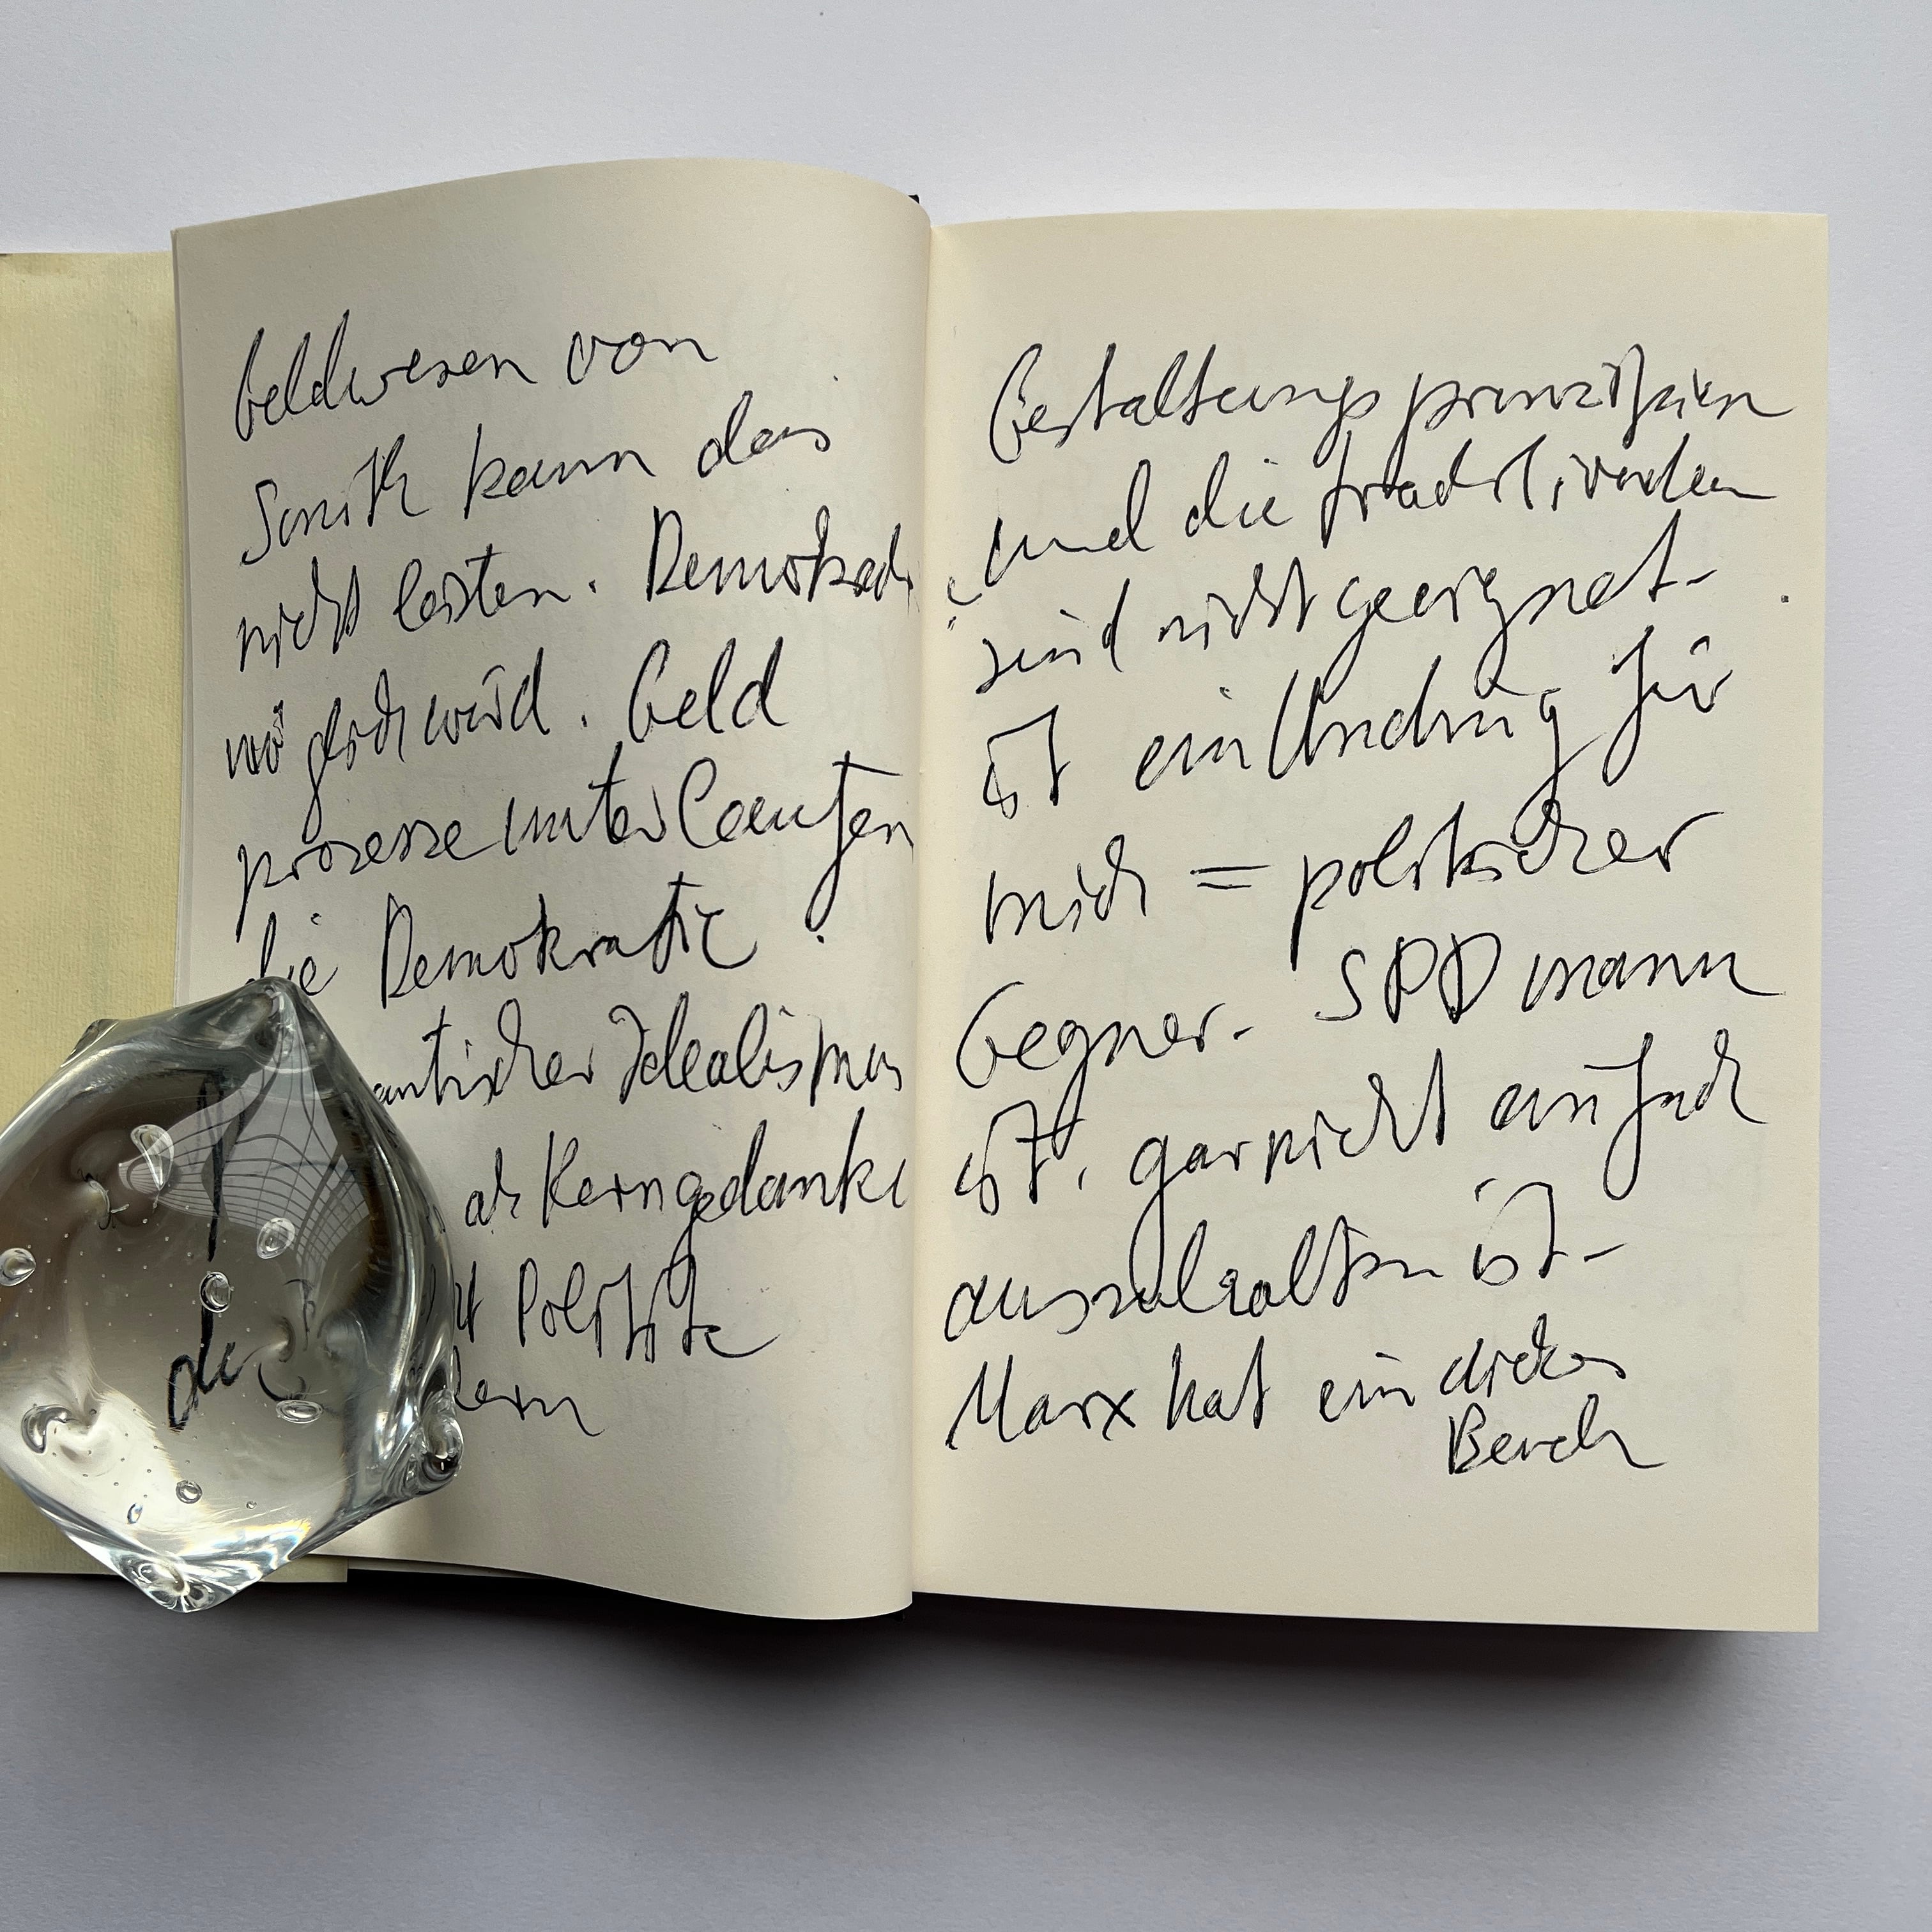 Geldwesen von
Smith kann das
nicht leisten. Demokratie
möglich wird. Geld
prozesse unterlaufen
die Demokratie.
antischer Idealismus
als Kerngedanke
Politik
der
Gestaltungsprinzipien
und die
sind nicht geeignet-
ist ein Unding für
mich = politischer
Gegner- SPD mann
ist, garnicht einfach
auszuhalten ist-
Marx hat ein dickes